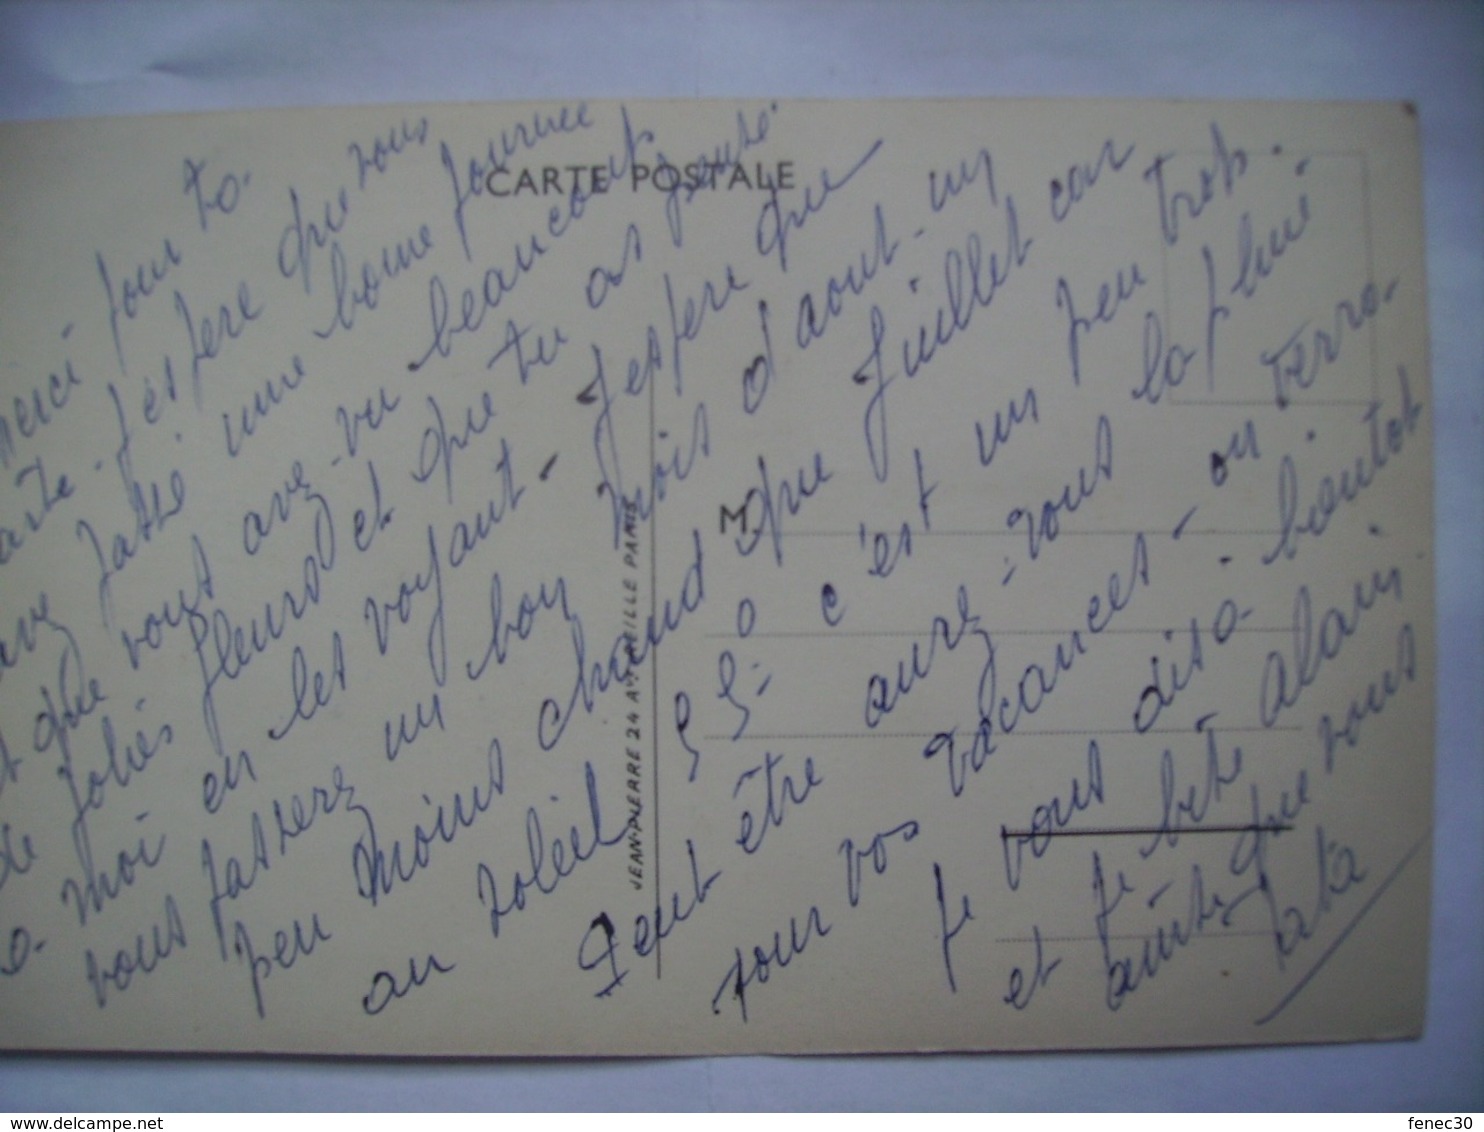 CARTE POSTALE
JEAN-PIERRE 24 Av. REILLE PARIS
M
Merci pour ta
carte. J'espere que vous
avez passé une bonne journée
et que vous avez vu beaucoup
de jolies fleurs et que tu as pensé
a moi en les voyant - J'espere que
vous passerez un bon mois d'aout - un
peu moins chaud que Juillet car
au soleil 55° c'est un peu trop.
Peut être aurez-vous la pluie
pour vos vacances - on verra.
Je vous dis a bientot
et je bise Alain
ainsi que vous
Tata
fenec30